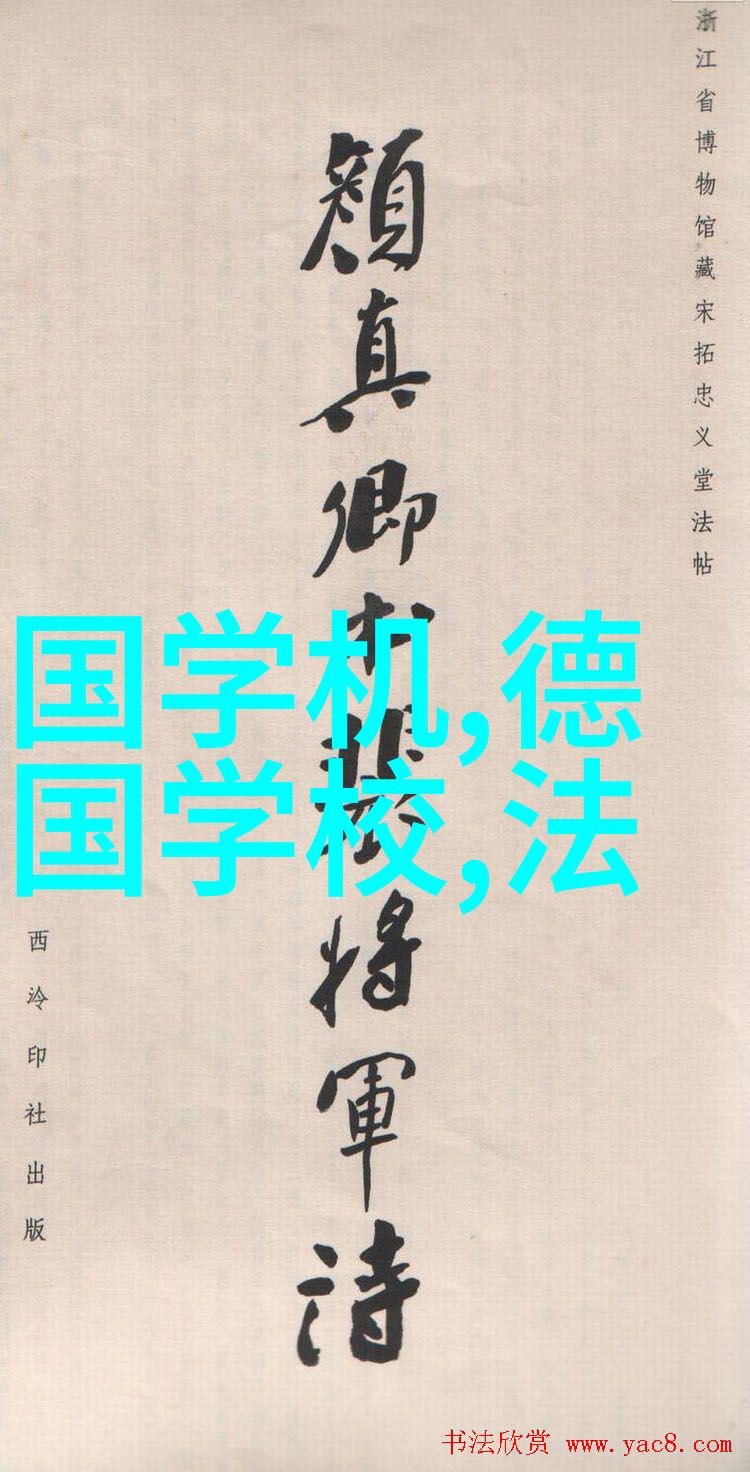 浙江省博物馆藏宋拓忠义堂法帖
顏真卿书裴将軍诗
国学机,德
国学校,法
西泠印社出版
书法欣赏 www.yac8.com